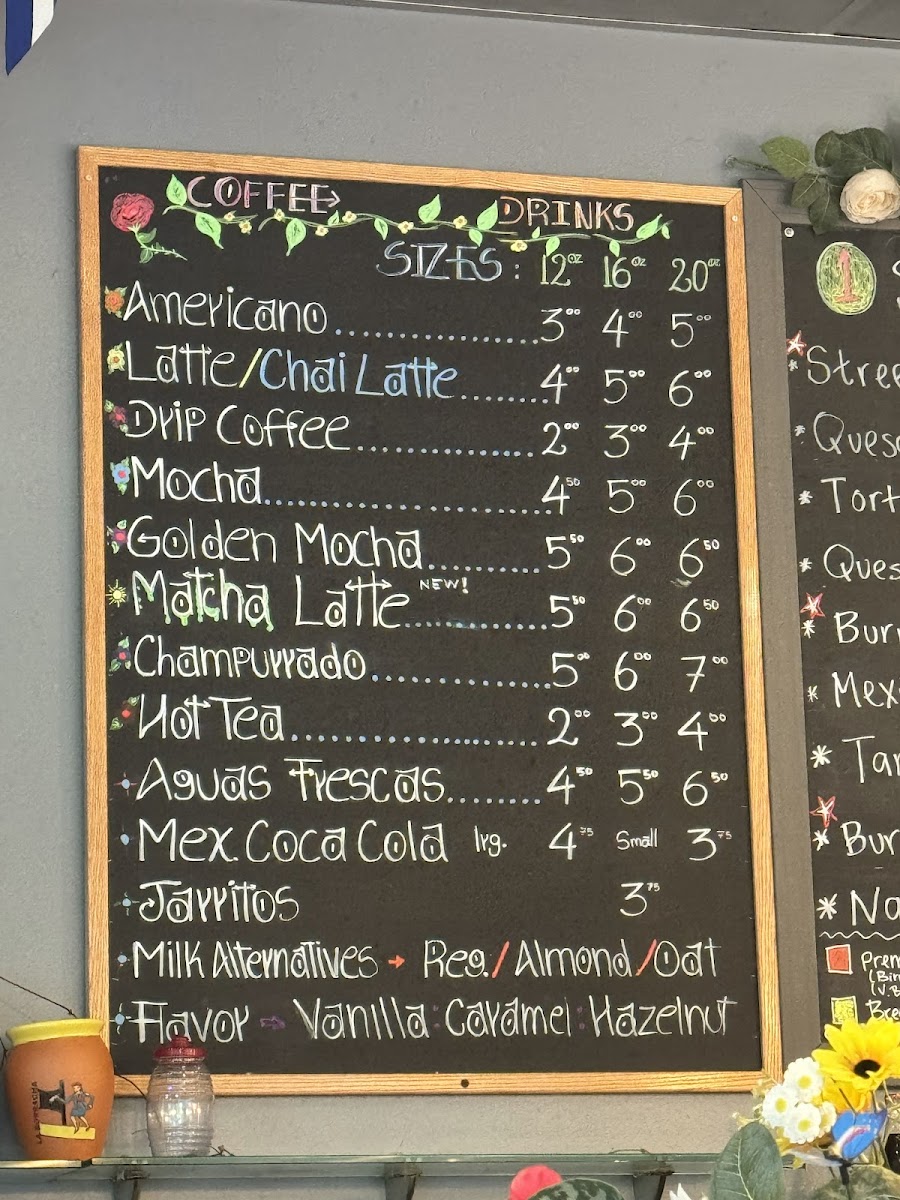 COFFEE DRINKS
SIZES: 12oz 16oz 20oz
Americano 3.00 4.00 5.00
Latte/Chai Latte 4.00 5.00 6.00
Drip Coffee 2.00 3.00 4.00
Mocha 4.50 5.00 6.00
Golden Mocha 5.50 6.00 6.50
Matcha Latte NEW! 5.50 6.00 6.50
Champurrado 5.00 6.00 7.00
Hot Tea 2.00 3.00 4.00
Aguas Frescas 4.50 5.50 6.50
Mex. Coca Cola lrg. 4.75 Small 3.75
Jarritos 3.75
Milk Alternatives → Reg./Almond/Oat
Flavor → Vanilla : Caramel : Hazelnut
* Stree
* Quesa
* Tort
* Ques
* Burr
* Mex
* Tar
* Bur
* Na
Prem
(Bir
(V.B
Bre